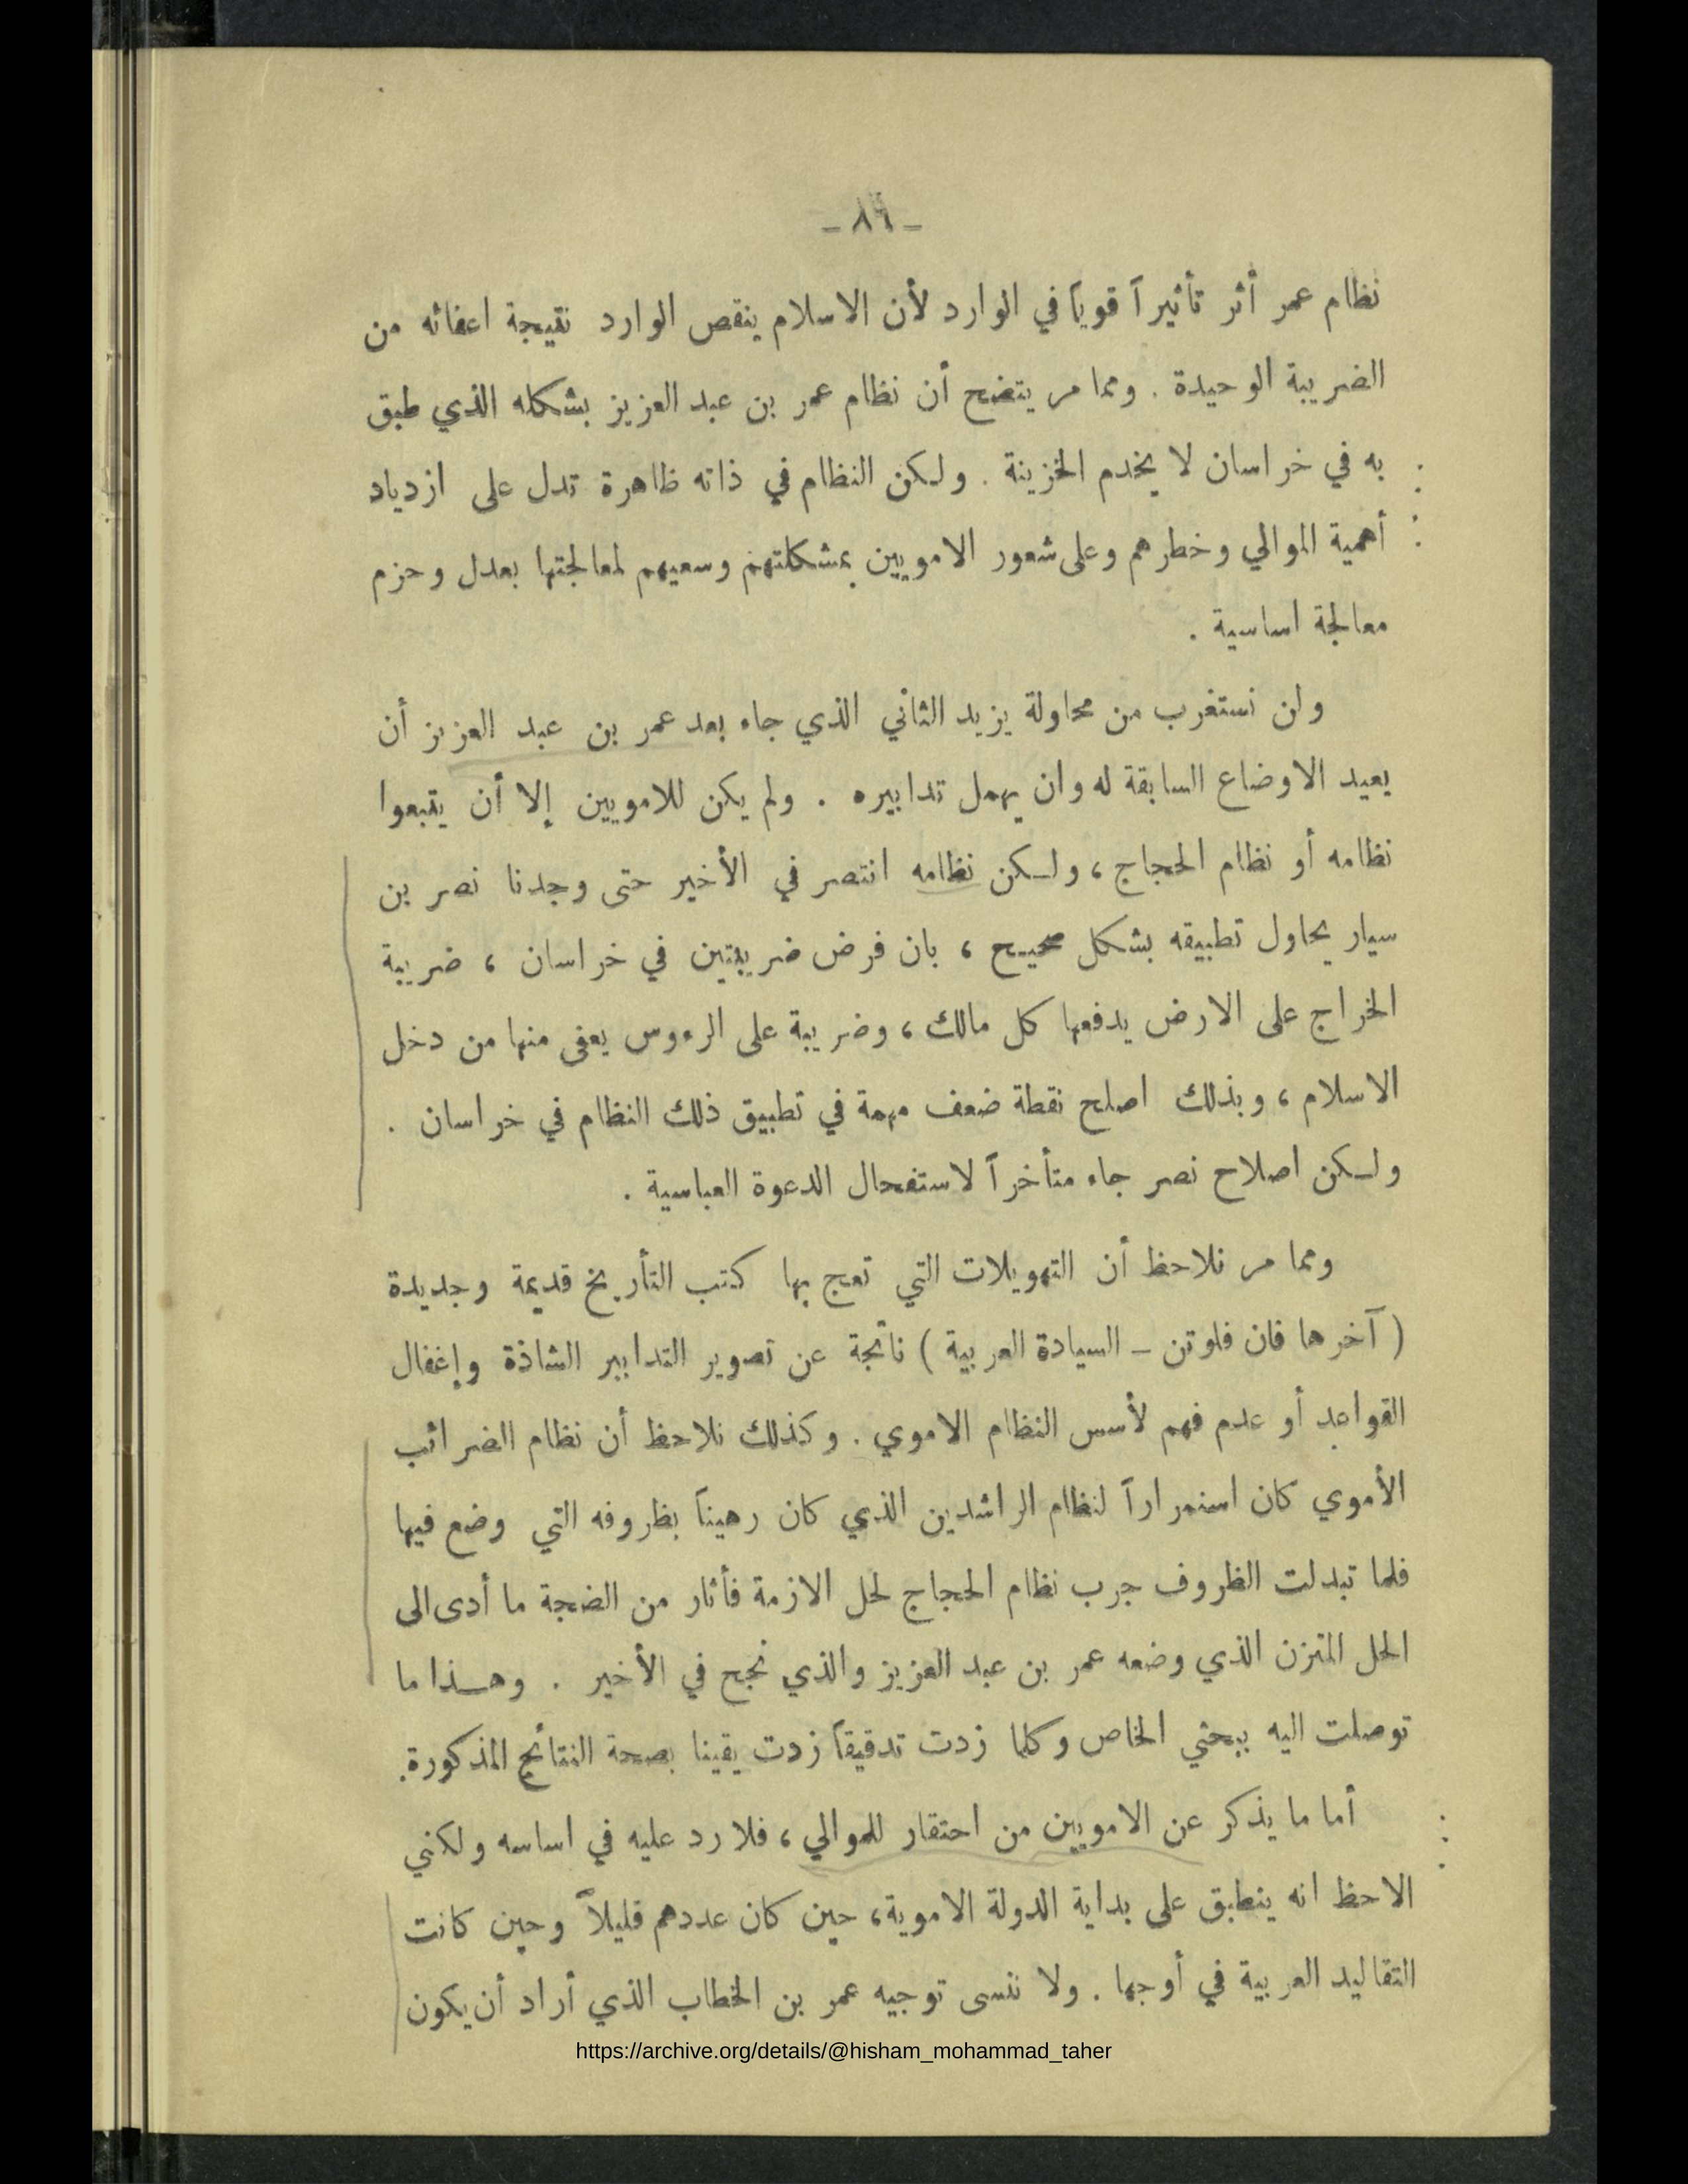 - ٨٦ -
نظام عمر أثر تأثيراً قوياً في الوارد لأن الاسلام ينقص الوارد نتيجة اعفائه من
الضريبة الوحيدة . ومما مر يتضح أن نظام عمر بن عبد العزيز بشكله الذي طبق
به في خراسان لا يخدم الخزينة . ولكن النظام في ذاته ظاهرة تدل على ازدياد
أهمية الموالي وخطرهم وعلى شعور الامويين بمشكلتهم وسعيهم لمعالجتها بعدل وحزم
معالجة اساسية .
ولن نستغرب من محاولة يزيد الثاني الذي جاء بعد عمر بن عبد العزيز أن
يعيد الاوضاع السابقة له وان يهمل تدابيره . ولم يكن للامويين إلا أن يتبعوا
نظامه أو نظام الحجاج ، ولكن نظامه انتصر في الأخير حتى وجدنا نصر بن
سيار يحاول تطبيقه بشكل صحيح ، بان فرض ضريبتين في خراسان ، ضريبة
الخراج على الارض يدفعها كل مالك ، وضريبة على الرءوس يعفى منها من دخل
الاسلام ، وبذلك اصلح نقطة ضعف مهمة في تطبيق ذلك النظام في خراسان .
ولكن اصلاح نصر جاء متأخراً لاستفحال الدعوة العباسية .
ومما مر نلاحظ أن التهويلات التي تعج بها كتب التأريخ قديمة وجديدة
( آخرها فان فلوتن - السيادة العربية ) ناتجة عن تصوير التدابير الشاذة وإغفال
القواعد أو عدم فهم لأسس النظام الاموي . وكذلك نلاحظ أن نظام الضرائب
الأموي كان استمراراً لنظام الراشدين الذي كان رهيناً بظروفه التي وضع فيها
فلما تبدلت الظروف جرب نظام الحجاج لحل الازمة فأثار من الضجة ما أدى الى
الحل المتزن الذي وضعه عمر بن عبد العزيز والذي نجح في الأخير . وهذا ما
توصلت اليه ببحثي الخاص وكلما زدت تدقيقاً زدت يقينا بصحة النتائج المذكورة.
أما ما يذكر عن الامويين من احتقار للموالي ، فلا رد عليه في اساسه ولكني
الاحظ انه ينطبق على بداية الدولة الاموية، حين كان عددهم قليلاً وحين كانت
التقاليد العربية في أوجها . ولا ننسى توجيه عمر بن الخطاب الذي أراد أن يكون
https://archive.org/details/@hisham_mohammad_taher